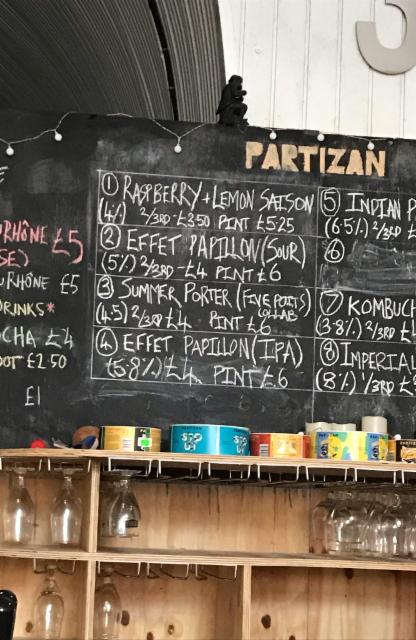 PARTIZAN
① RASPBERRY + LEMON SAISON
(4%) 2/3RD - £3.50 PINT £5.25
② EFFET PAPILLON (SOUR)
(5%) 2/3RD - £4 PINT £6
③ SUMMER PORTER (FIVE POINTS COLLAB)
(4.5) 2/3RD £4 PINT £6
④ EFFET PAPILLON (IPA)
(5.8%) £4 PINT £6
⑤ INDIAN P
(6.5%) 2/3RD £
⑥
⑦ KOMBUCH
(3.8%) 2/3RD £
⑧ IMPERIAL
(8%) 1/3RD £
RHÔNE £5
SE)
RHÔNE £5
DRINKS*
CHA £4
OOT £2.50
£1